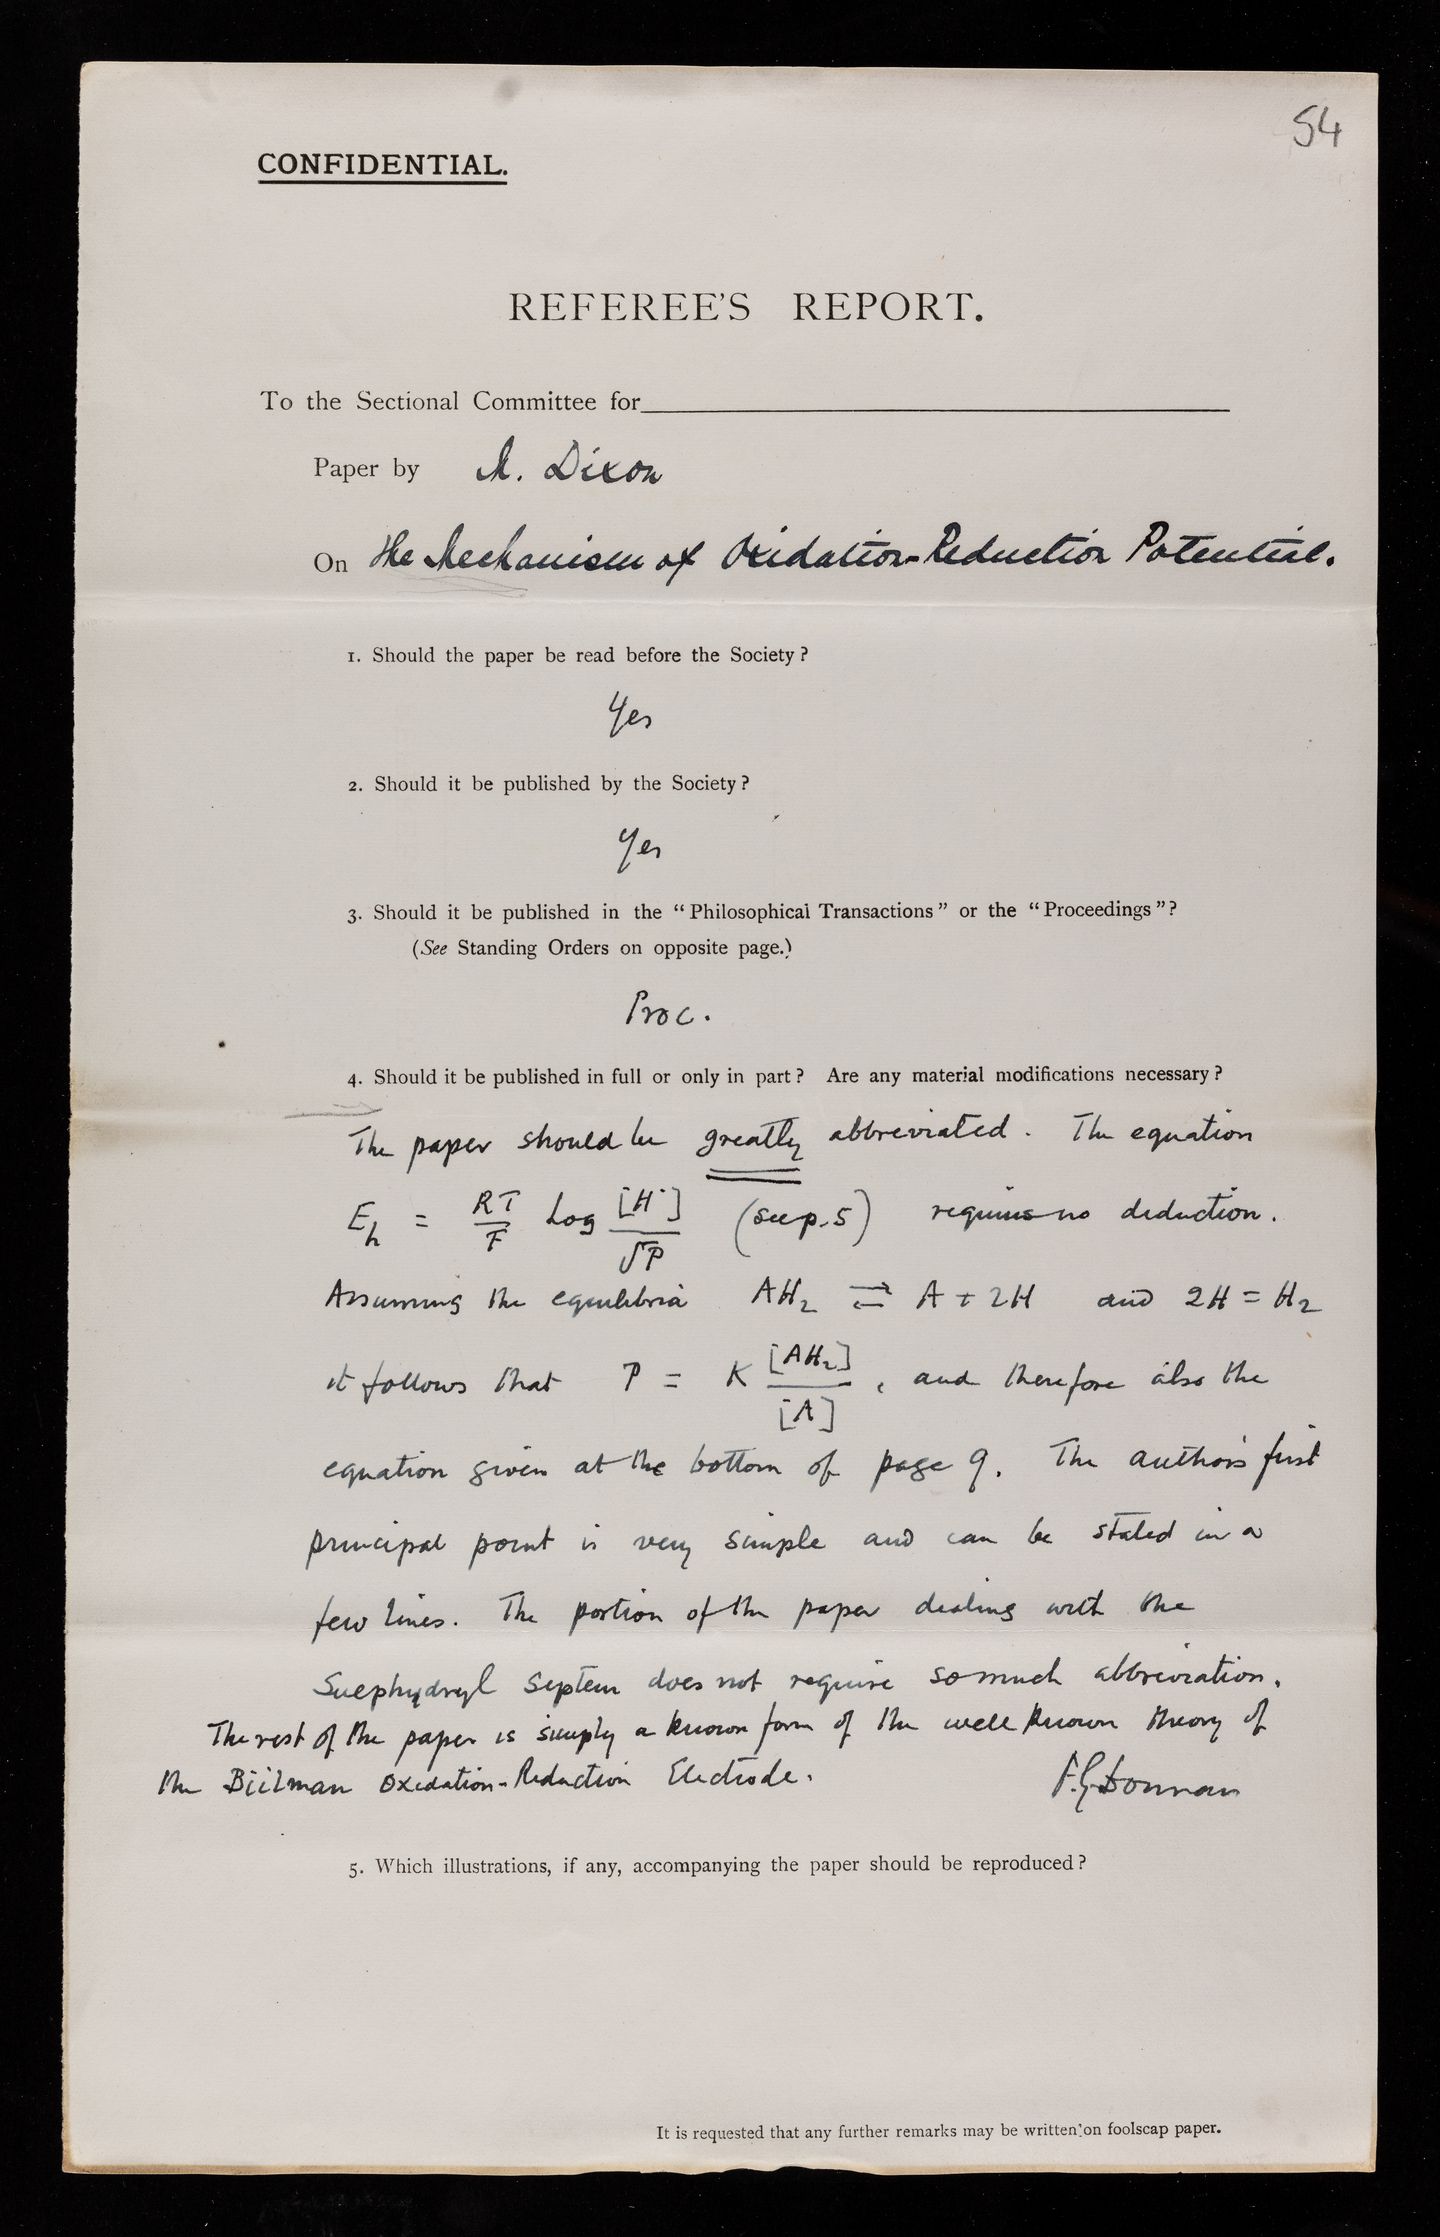 54
CONFIDENTIAL.
REFEREE'S REPORT.
To the Sectional Committee for
Paper by M. Dixon
On The Mechanism of Oxidation-Reduction Potential.
1. Should the paper be read before the Society?
Yes
2. Should it be published by the Society?
Yes
3. Should it be published in the "Philosophical Transactions" or the "Proceedings"?
(See Standing Orders on opposite page.)
Proc.
4. Should it be published in full or only in part? Are any material modifications necessary?
The paper should be greatly abbreviated. The equation
E_h = RT/F log [H·]/√P (see p. 5) requires no deduction.
Assuming the equilibria AH₂ ⇌ A + 2H and 2H = H₂
it follows that P = K [AH₂]/[A], and therefore also the
equation given at the bottom of page 9. The author's first
principal point is very simple and can be stated in a
few lines. The portion of the paper dealing with the
Sulphydryl System does not require so much abbreviation.
The rest of the paper is simply a known form of the well known theory of
the Biilman Oxidation-Reduction Electrode.
F.G. Donnan
5. Which illustrations, if any, accompanying the paper should be reproduced?
It is requested that any further remarks may be written on foolscap paper.